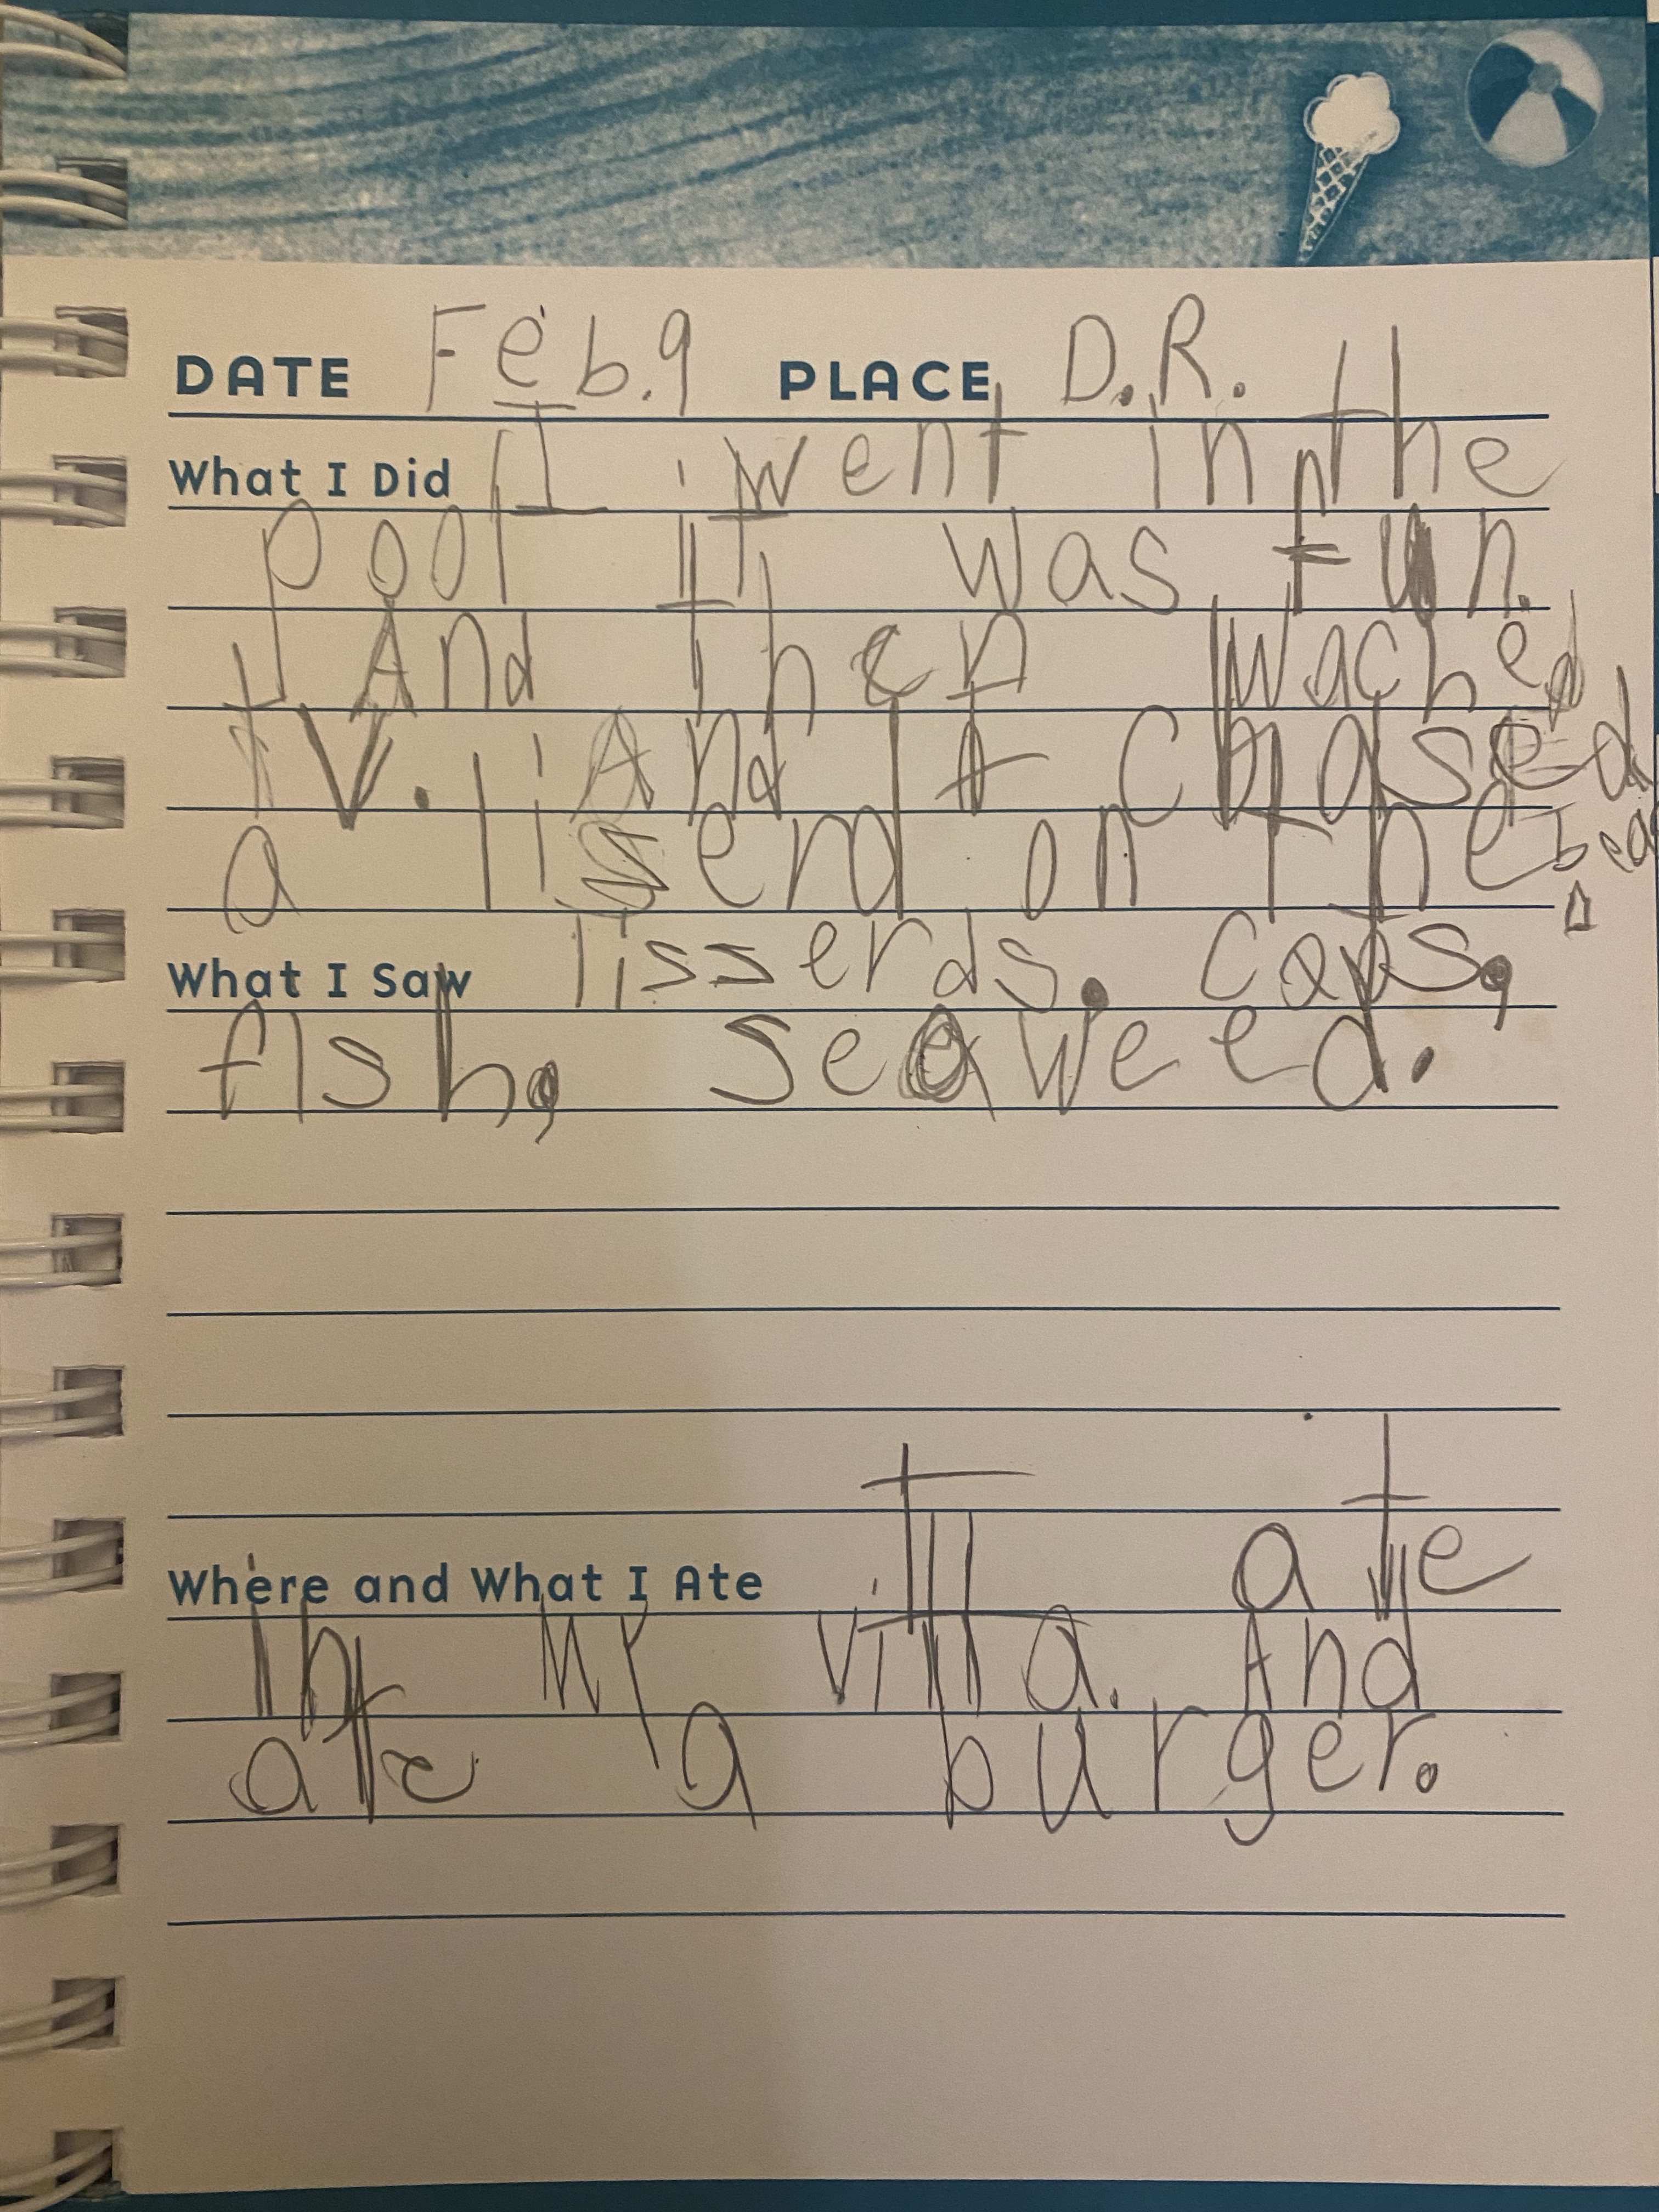 DATE Feb.9 PLACE D.R.
What I Did I went in the
pool It was fun.
And then I wached
TV. And I chased
a lisserd on the
What I Saw lisserds. cats,
fish, seaweed.
Where and What I Ate I ate
in my villa. And
ate a burger.